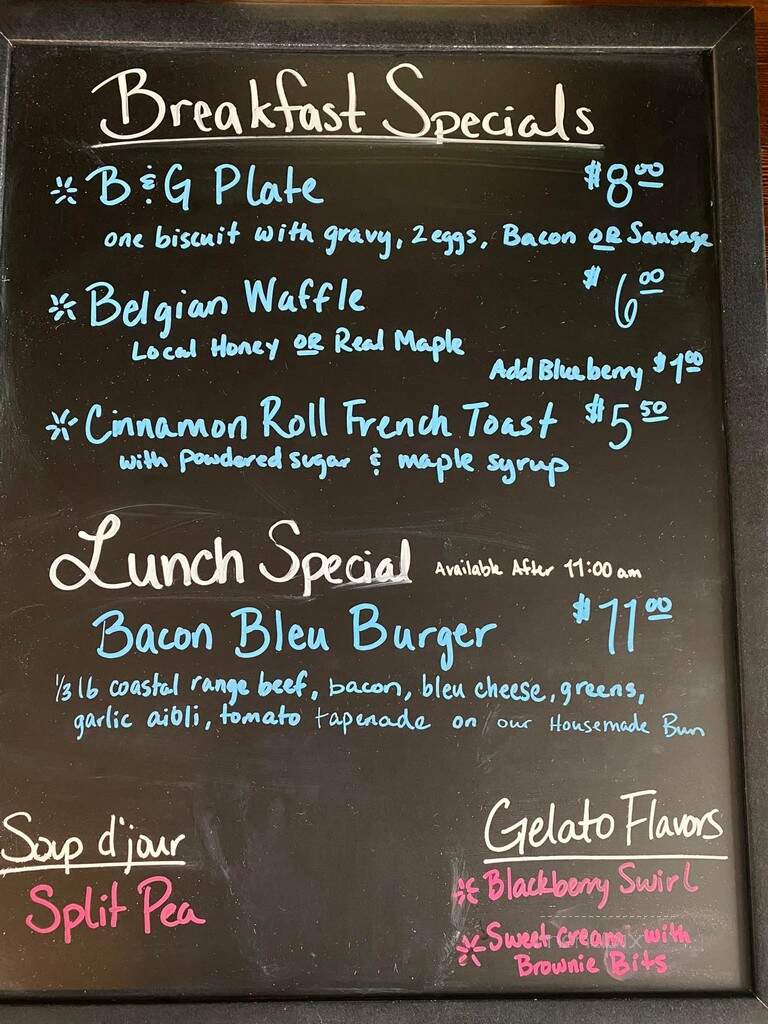 Breakfast Specials
B & G Plate $8.00
one biscuit with gravy, 2 eggs, Bacon OR Sausage
Belgian Waffle $6.00
Local Honey OR Real Maple
Add Blueberry $1.00
Cinnamon Roll French Toast $5.50
with Powdered sugar & maple syrup
Lunch Special Available After 11:00 am
Bacon Bleu Burger $11.00
1/3 lb coastal range beef, bacon, bleu cheese, greens,
garlic aioli, tomato tapenade on our Housemade Bun
Soup d'jour
Split Pea
Gelato Flavors
Blackberry Swirl
Sweet Cream with
Brownie Bits